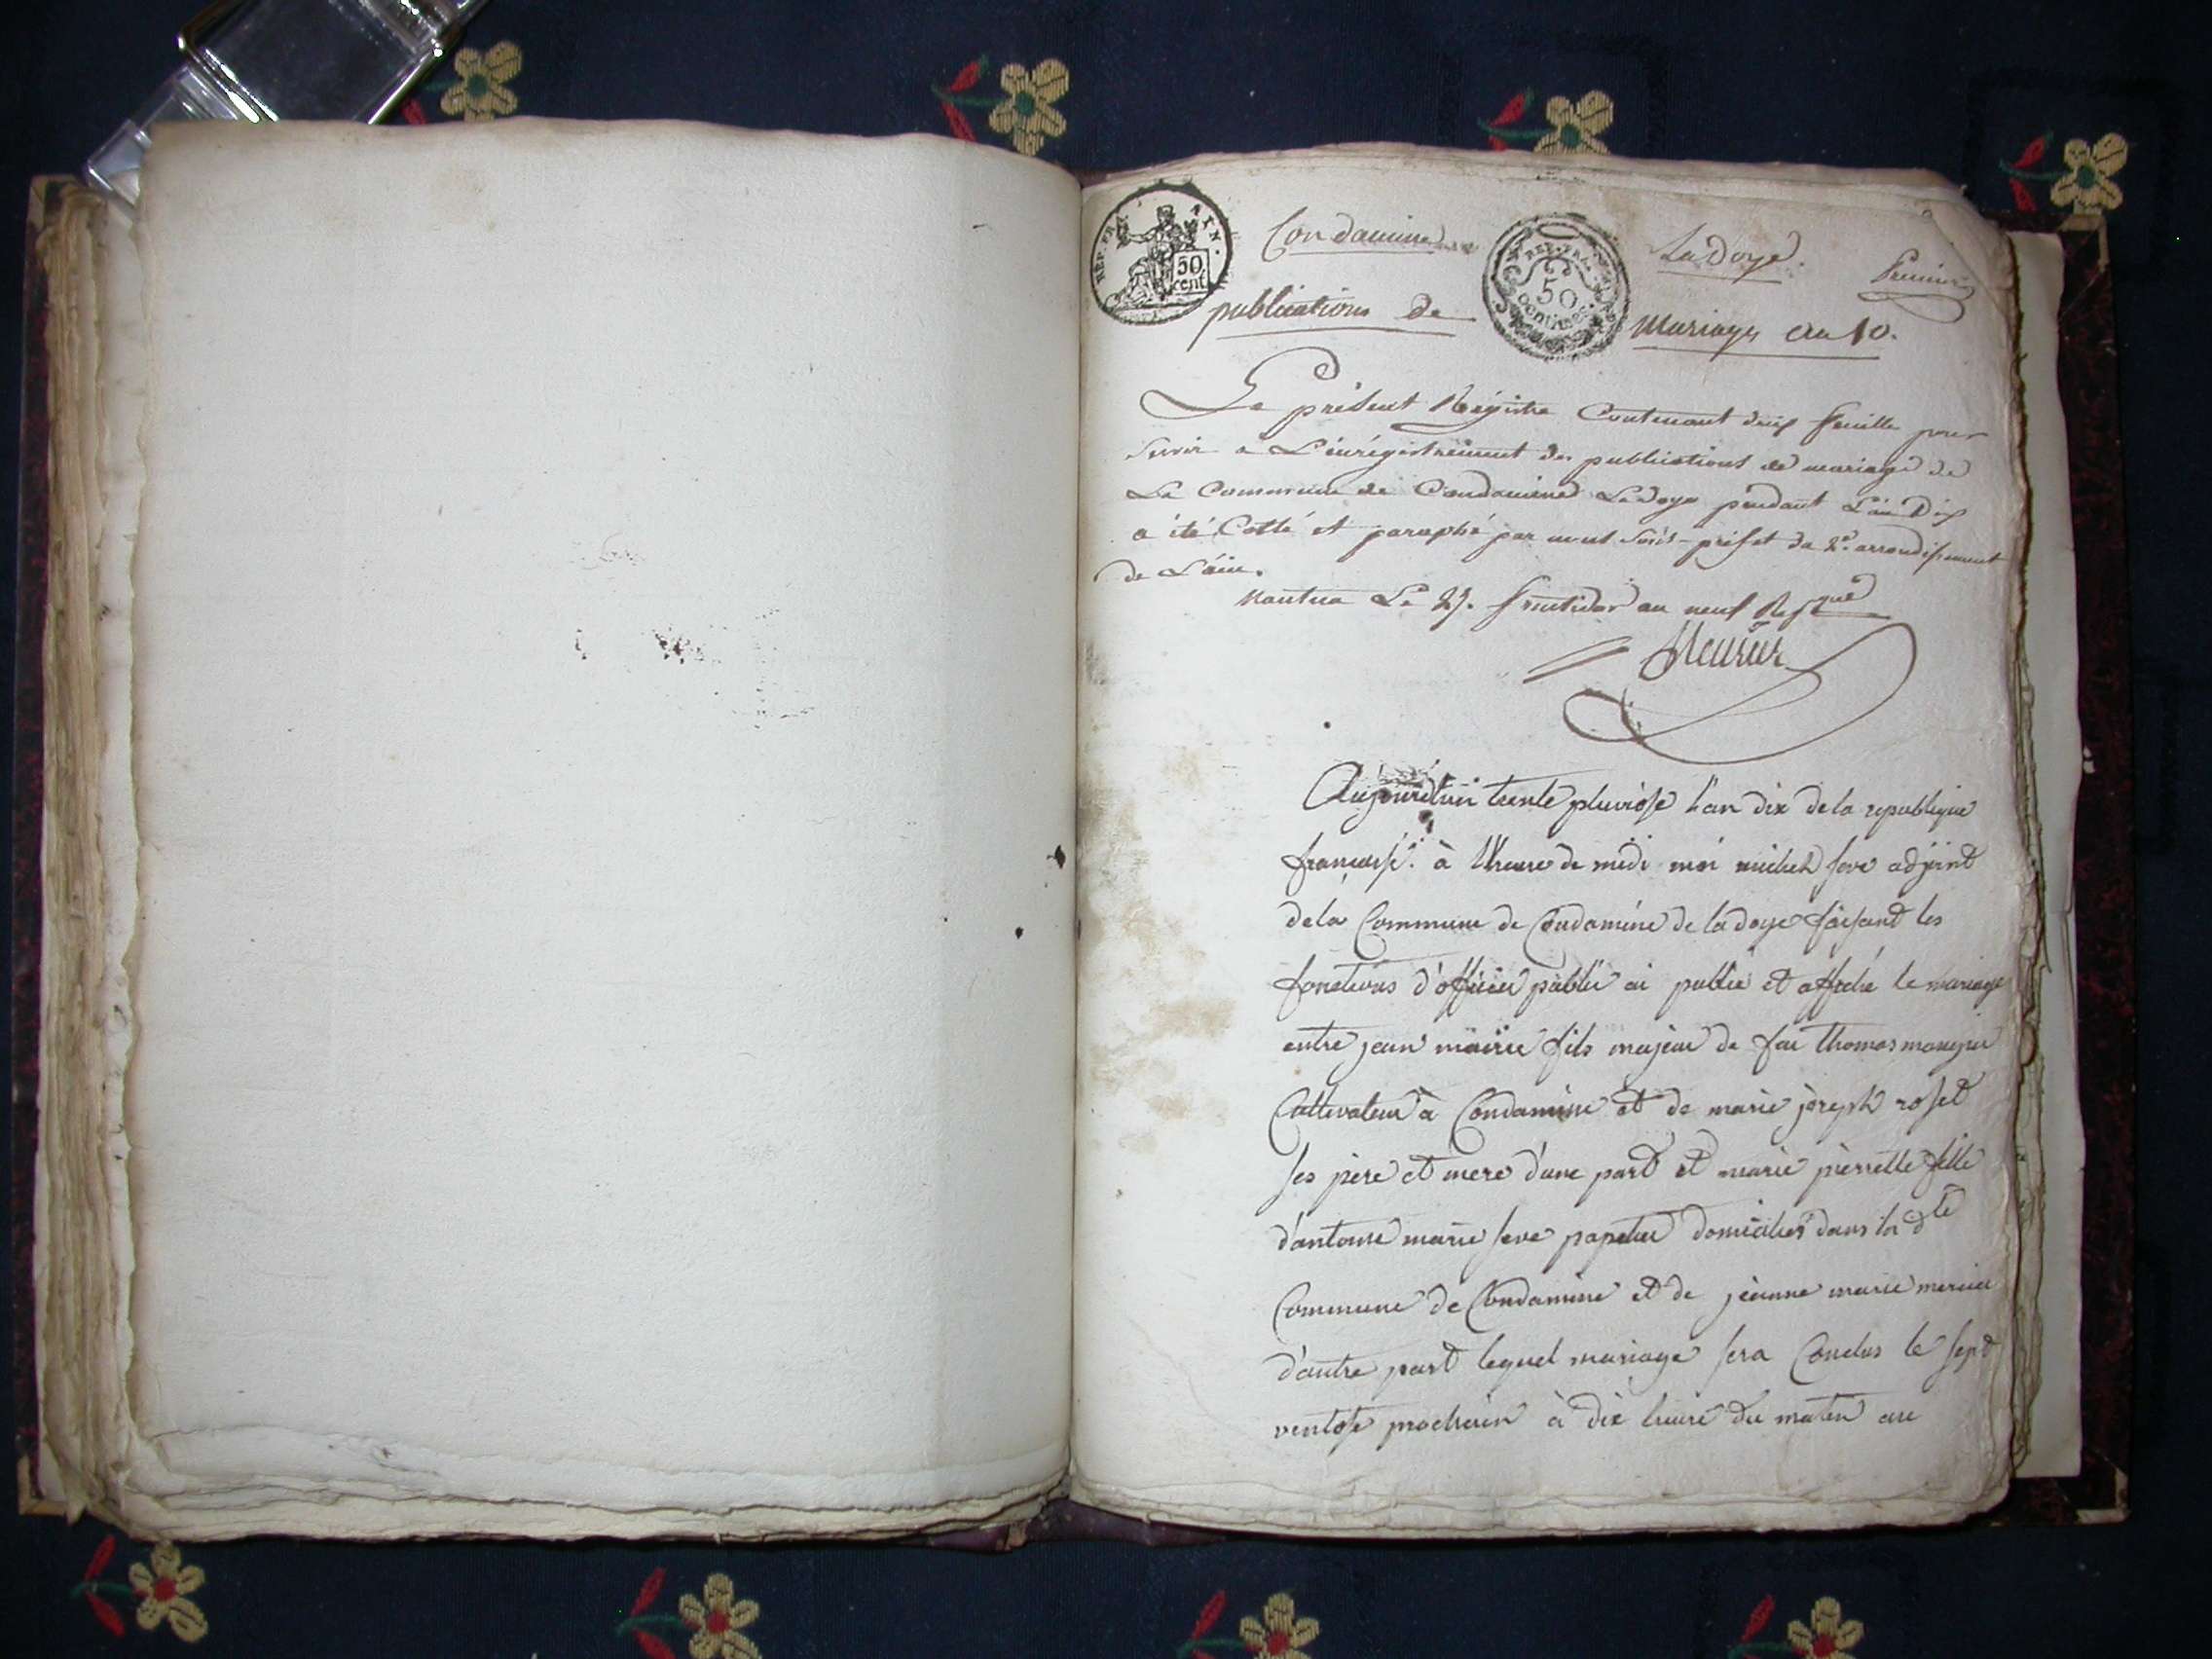 REP. FRA.
50
cent.
Condamine
REP. FRA.
50
centimes
La Doye.
Premier
publications de Mariages an 10.
Le présent Régistre Contenant deux feuille pour
servir a L'enrégistrement des publications de mariage de
La Commune de Condamine Ladoye pendant L'an Dix
a été Cotté et paraphé par nous sous-préfet du 2e. arrondissement
de L'ain.
Nantua Le 25. fructidor an neuf
Aujourdhui trente pluviose l'an dix de la republique
francaise à l'heure de midi moi michel seve adjoint
de la Commune de Condamine de la doye faisant les
fonctions d'officier public ai publié et affiché le mariage
entre jean marie fils majeur de feu thomas
Cultivateur à Condamine et de marie joseph roset
ses père et mere d'une part et marie pierrette fille
d'antoine marie seve papetier domiciliés dans la dte
Commune de Condamine et de jeanne marie mercier
d'autre part lequel mariage sera Conclus le sept
ventose prochain à dix heure du matin au